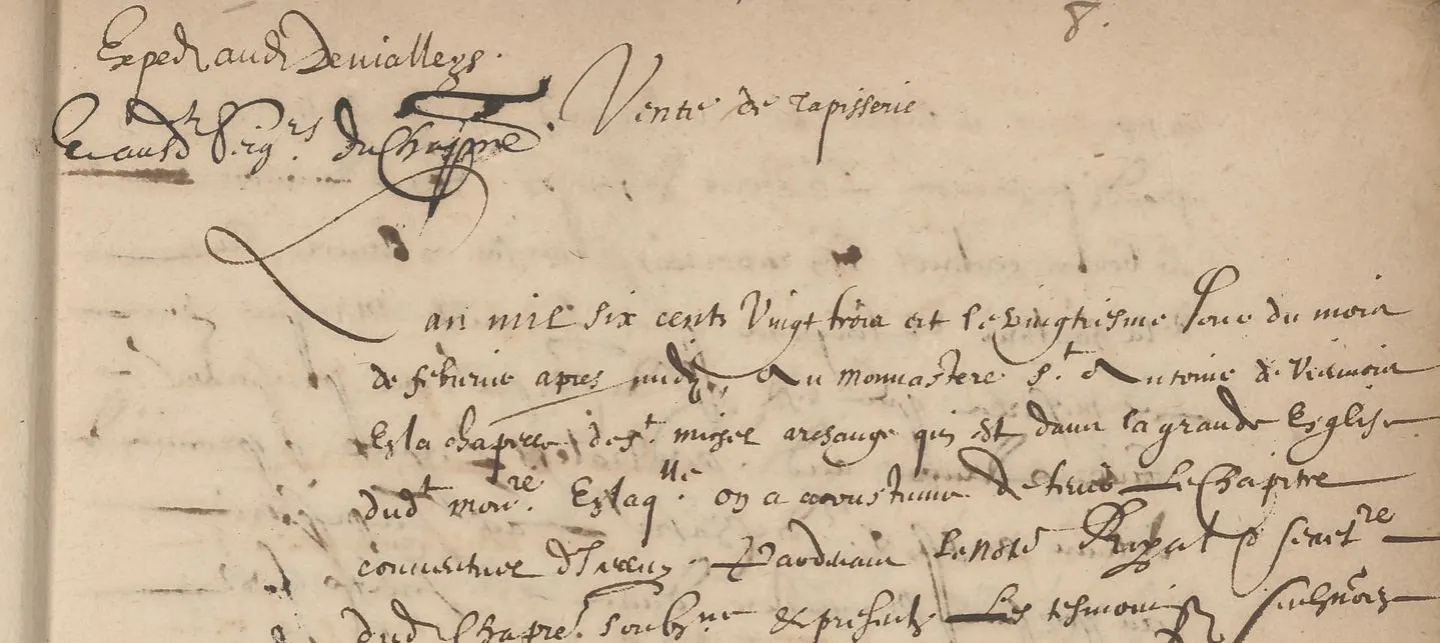 8.
Exped. aud. Devialleys.
Et ausd. Seigrs du Chappre
Vente de tapisserie.
L an mil six cents vingt trois et le vingtiesme Jour du mois
de feburier apres midy, Au monnastere St Antoine de Viennois
En la chapelle de St michel archange qui est dans la grande Eglise
dudt monre. En laqlle on a acoustume de tenir Le Chapitre
conventuel d'Icelluy Pardevant Le notre & secretre
dud. Chapre. soubzne & presentz Les tesmoins